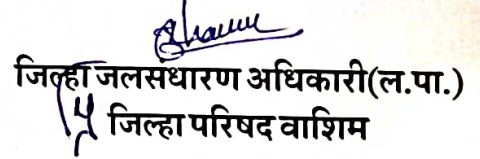 जिल्हा जलसंधारण अधिकारी(ल.पा.)
जिल्हा परिषद वाशिम